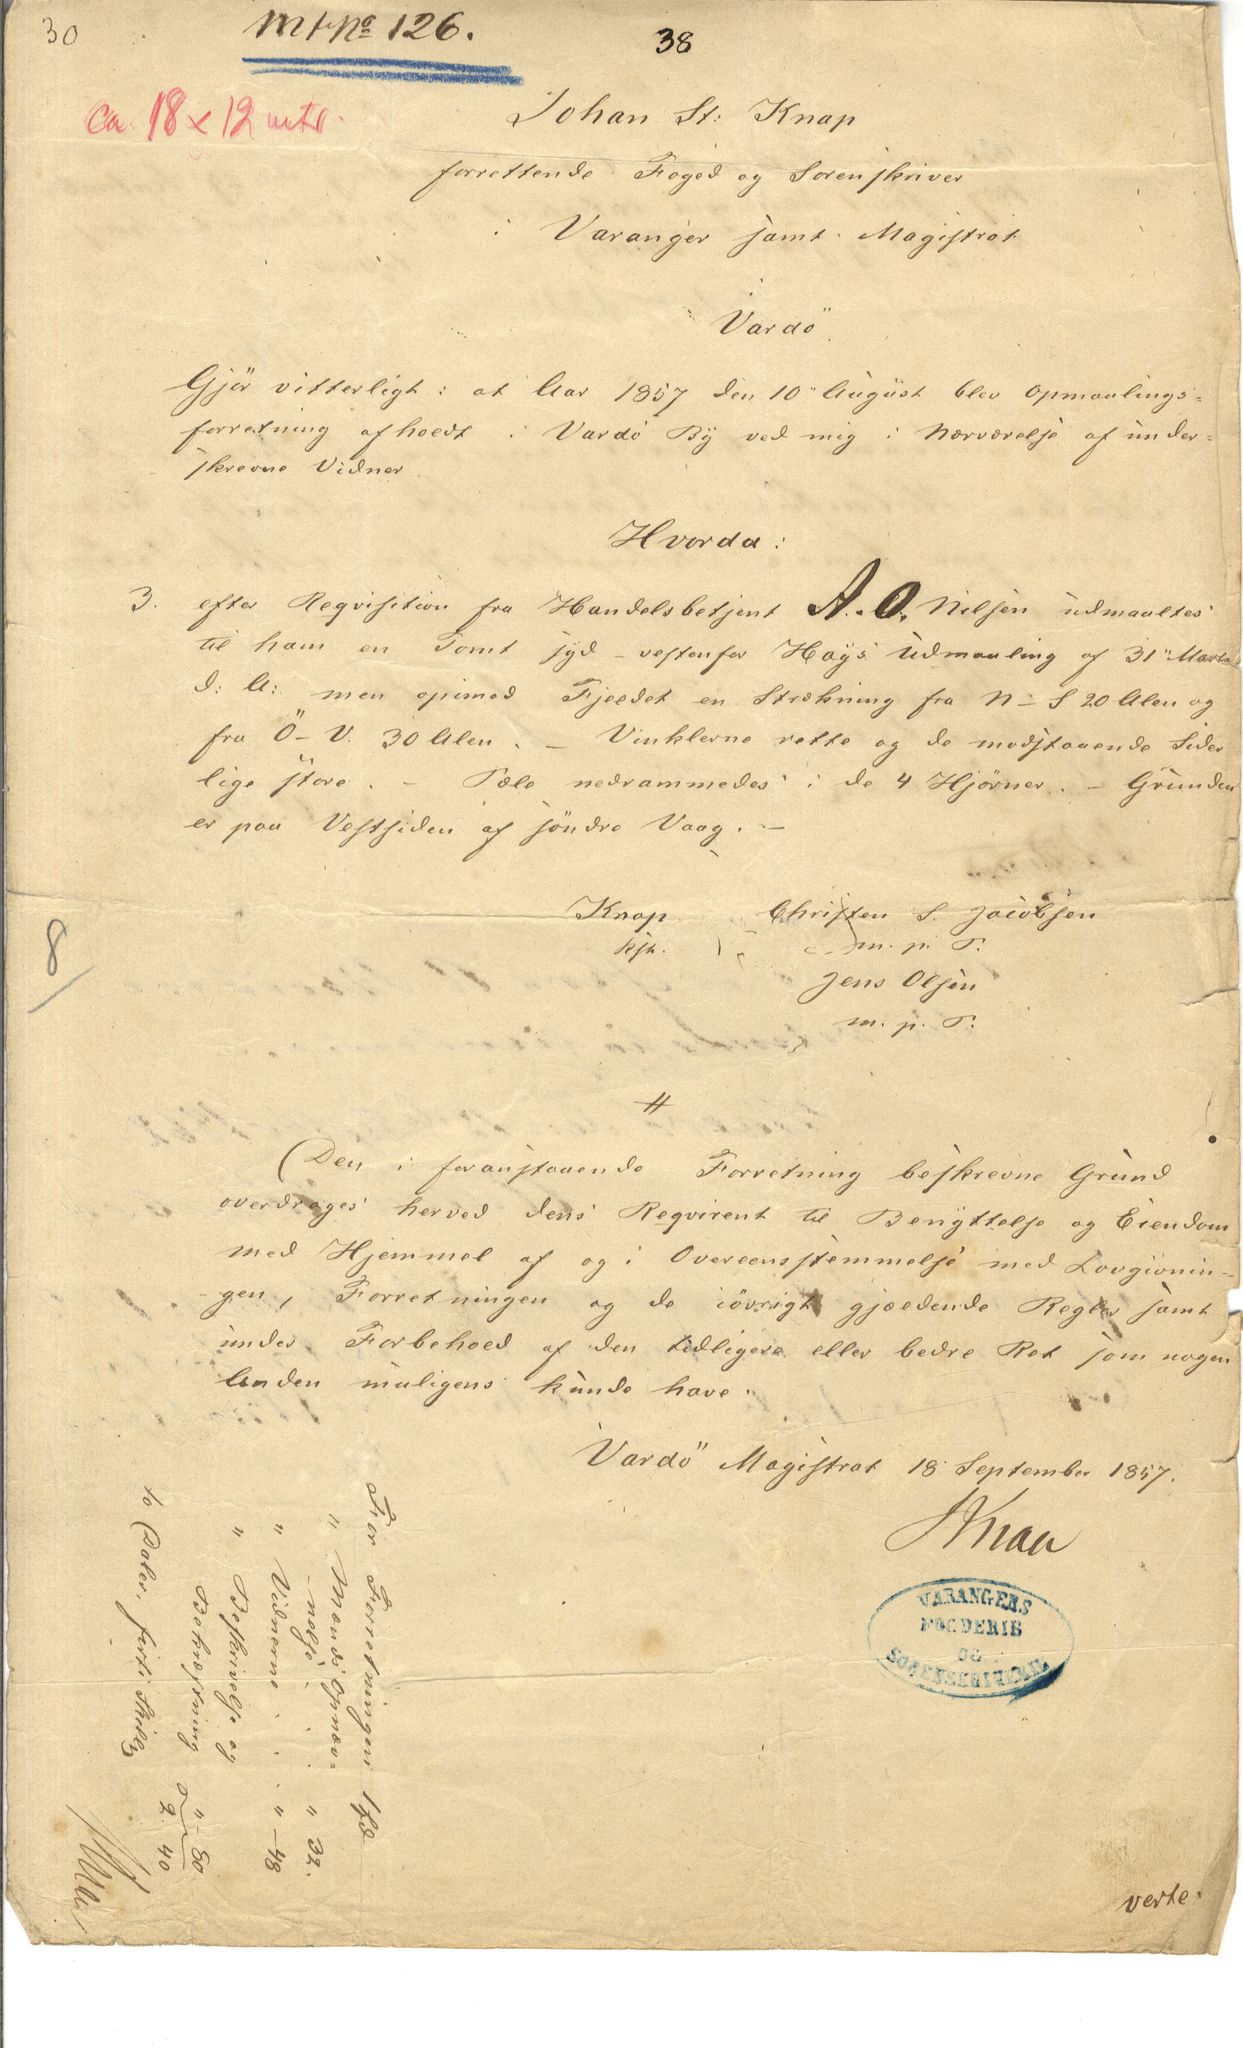 30
Mtr No 126.
38
ca. 18 x 12 mtr.
Johan St: Knap
forrettende Foged og Sorenskriver
i Varanger samt Magistrat
i
Vardö.
Gjör vitterligt: at Aar 1857 den 10 August blev Opmaalings-
forretning afholdt i Vardö By ved mig i Nærværelse af under-
skrevne Vidner.
Hvorda:
3. efter Reqvisition fra Handelsbetjent A. O. Nilsen udmaaltes
til ham en Tomt syd-vestenfor Hays Udmaaling af 31 Marts
d: A: men opimod Fjeldet en Strækning fra N-S 20 Alen og
fra Ö-V. 30 Alen. - Vinklerne rette og de modstaaende Sider
lige store. - Pæle nedrammedes i de 4 Hjörner. - Grunden
er paa Vestsiden af söndre Vaag. -
Knap Christen S. Jacobsen
kst. m. p. P.
Jens Olsen
m. p. P.
#
Den i foranstaaende Forretning beskrevne Grund
overdrages herved dens Reqvirent til Benyttelse og Eiendom
med Hjemmel af og i Overeensstemmelse med Lovgivnin-
gen, Forretningen og de iövrigt gjældende Regler samt
under Forbehold af den tidligere eller bedre Ret som nogen
Anden muligens kunde have.
Vardö Magistrat 18 September 1857.
Knap
VARANGERS
FOGDERIE
OG
SORENSKRIVERIE
For Forretningen 1 Spd
" Mænds Opnæv-
nelse . . " 32.
" Vidnerne . . " - 48
" Beskrivelse og
Bekræftning " - 80
2. 40
to Daler, firti Skill
Knap
8
verte.